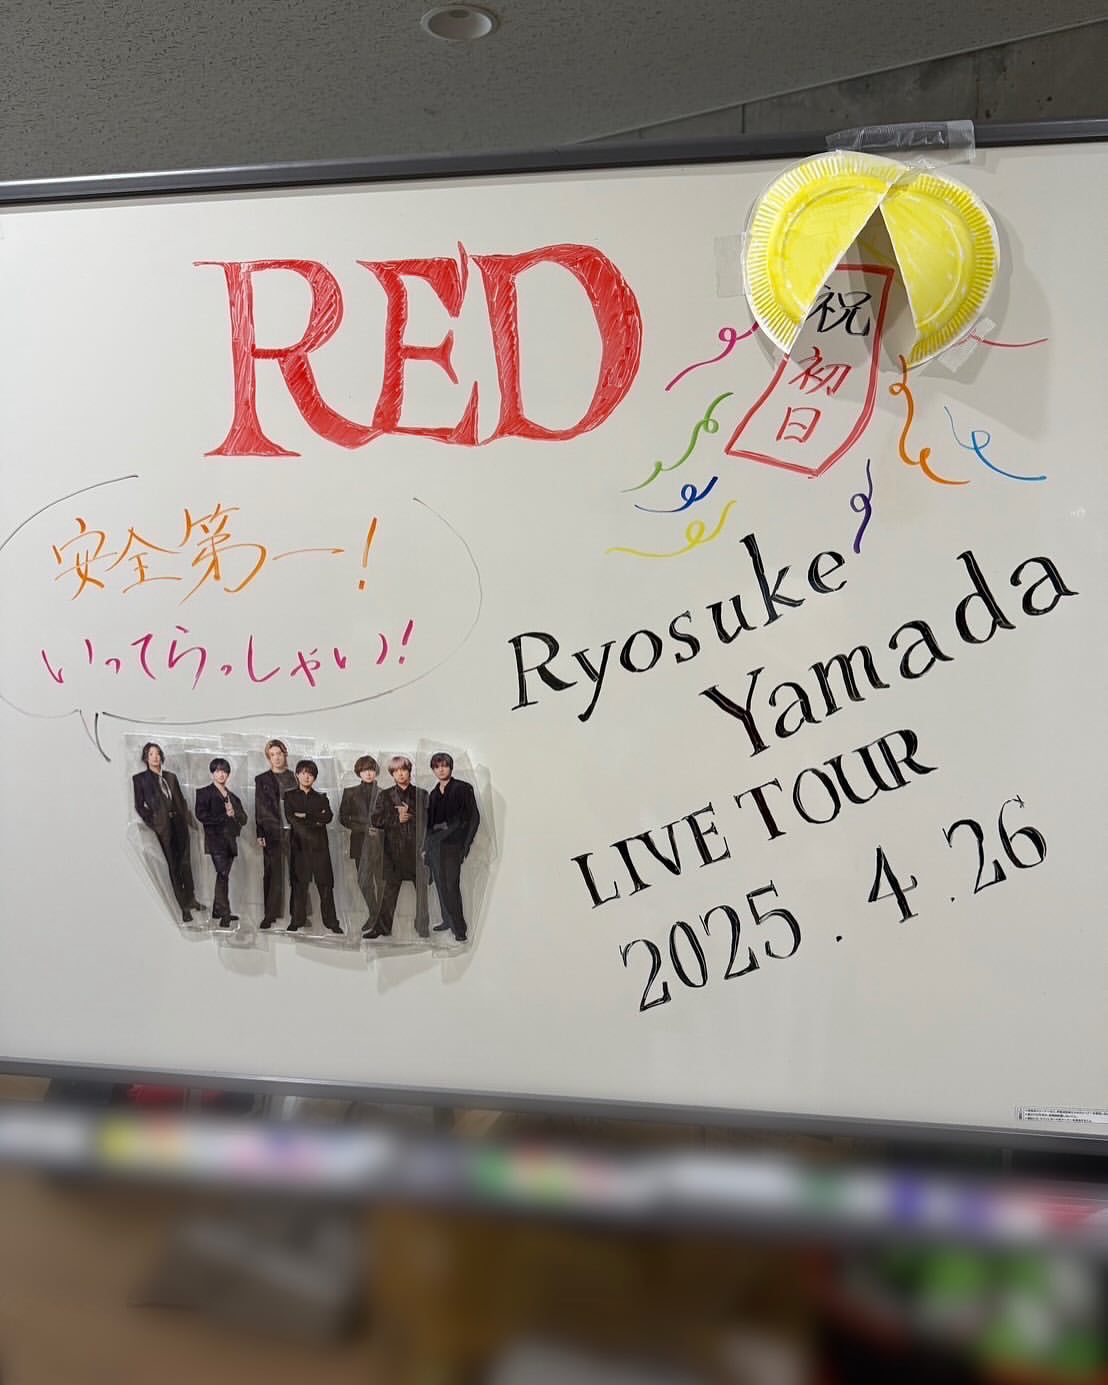 RED
祝
初
日
安全第一!
いってらっしゃい!
Ryosuke
Yamada
LIVE TOUR
2025.4.26